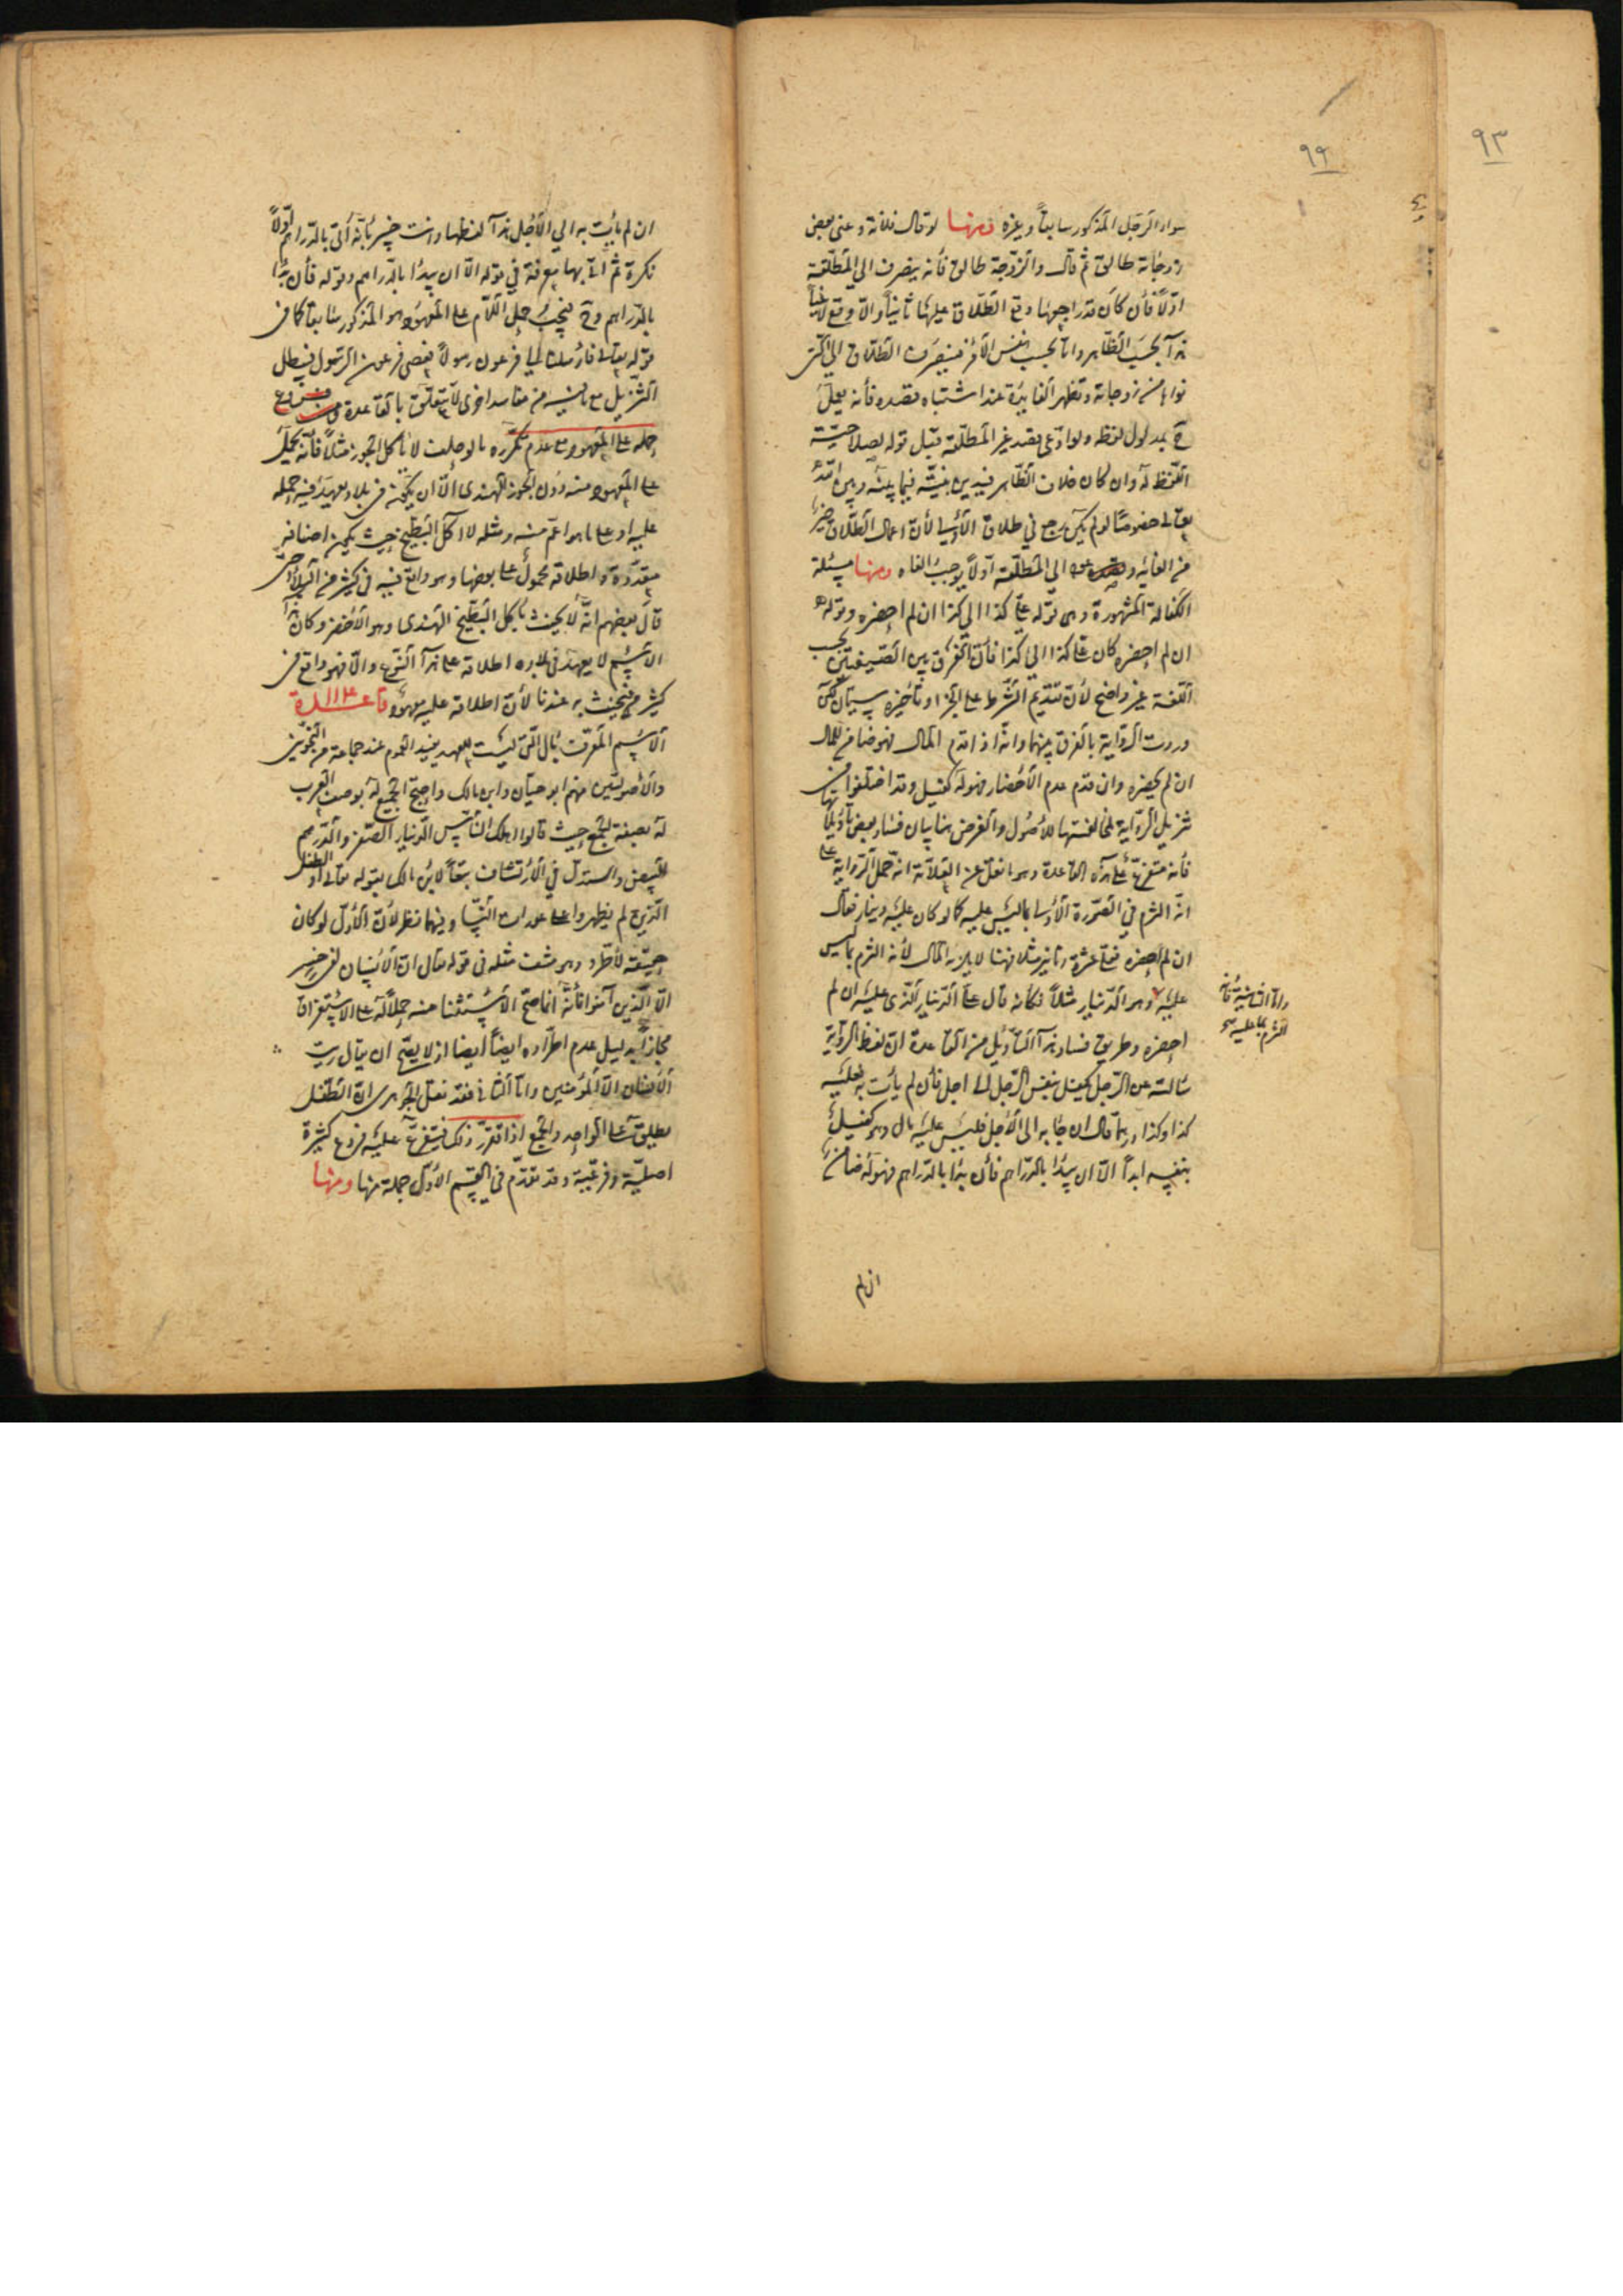 ٩٣
٩٩
سواء الرجل المذكور سابقا وغيره ومنها لو قال فلانة وعنى بعض
زوجاته طالق ثم قال والزوجة طالق فأنه ينصرف الى المطلقة
اولا فأن كان قد راجعها وقع الطلاق عليها ثانيا والا وقع لاغيا
هذا بحسب الظاهر واما بحسب نفس الأمر فينصرف الطلاق الى التى
نواها من زوجاته وتظهر الفايدة عند اشتباه قصده فأنه يعمل
ح بمدلول لفظه ولو ادعى قصد غير المطلقة قبل قوله لصلاحية
اللفظ له وان كان خلاف الظاهر فيدين بنيته فيما بينه وبين الله
تعالى خصوصا لو لم يكن رجع في طلاق الأولى لأن اعمال الطلاق خير
من الغائه و الى المطلقة اولا يوجب الغاه ومنها مسئلة
الكفالة المشهورة وهى قوله على كذا الى كذا ان لم احضره وقوله
ان لم احضره كان على كذا الى كذا فأن الفرق بين الصيغتين بحسب
اللغة غير واضح لأن تقديم الشرط على الجزا وتأخيره سيان لكن
وردت الرواية بالفرق بينهما وانه اذا قدم المال فهو ضامن للمال
ان لم يحضره وان قدم عدم الأحضار فهو له كفيل وقد اختلفوا في
تنزيل الرواية لمخالفتها للأصول والغرض هنا بيان فساد بعض تأويلاتها
فأنه متفرع على هذه القاعدة وهو ما نقل عن العلامة انه حمل الرواية على
انه التزم في الصورة الأولى بما ليس عليه كما لو كان عليه دينار فقال
ان لم احضره فعلى عشرة دنانير مثلا فهنا لا يلزمه المال لأنه التزم بما ليس
عليه وهو الدينار مثلا فكأنه قال على الدينار الذى عليه ان لم
واما الثانية فأنه
التزم بما عليه صح
احضره وطريق فساد هذا التأويل من القاعدة ان لفظ الرواية
سألته عن الرجل يكفل بنفس الرجل الى اجل فأن لم يأت به فعليه
كذا وكذا درهما قال ان جا به الى الأجل فليس عليه مال وهو كفيل
بنفسه ابدا الا ان يبدأ بالدراهم فأن بدأ بالدراهم فهو له ضامن
ان لم
ان لم يأت به الى الأجل هذا لفظها وانت خبير بأنه أتى بالدراهم اولا
نكرة ثم اتى بها معرفة في قوله الا ان يبدأ بالدراهم وقوله فأن بدأ
بالدراهم وح فيجب حمل اللام على المعهود وهو المذكور سابقا كما فى
قوله تعالى فأرسلنا الى فرعون رسولا فعصى فرعون الرسول فيبطل
التنزيل مع ما فيه من مفاسد اخرى لا يتعلق بالقاعدة ومن فروع
حمله على المعهود مع عدم تكرره ما لو حلف لا يأكل الجوز مثلا فأنه يحمل
على المعهود منه دون الجوز الهندى الا ان يكون في بلاد يعهد فيه حمله
عليه او على ما هو اعم منه ومثله لا اكل البطيخ حيث يكون اصنافه
متعددة واطلاقه محمول على بعضها وهو واقع فيه في كثير من البلاد حتى
قال بعضهم انه لا يحنث بأكل البطيخ الهندى وهو الأخضر وكان هذا
الأسم لا يعهد في بلاده اطلاقه على هذا النوع والا فهو واقع في
كثير منها فيحنث به عندنا لأن اطلاقه عليه معهود قاعدة
الأسم المعرف بأل التى ليست للعهد يفيد العموم عند جماعة من النحويين
والأصوليين منهم ابو حيان وابن مالك واحتج الجميع له بوصف العرب
له بصفة الجمع حيث قالوا اهلك الناس الدينار الصفر والدرهم
البيض واستدل في الأرتشاف تبعا لأبن مالك بقوله تعالى او الطفل
الذين لم يظهروا على عورات النسا وفيهما نظر لأن الأول لو كان
حقيقة لأطرد وهو منتف مثله فى قوله تعالى ان الأنسان لفى خسر
الا الذين آمنوا فأنه انما صح الأستثنا منه حملا له على الاستغراق
مجازا بدليل عدم اطراده ايضا ايضا اذ لا يصح ان يقال رأيت
الأنسان الا المؤمنين واما الثانى فقد نقل الجوهرى ان الطفل
يطلق على الواحد والجمع اذا تقرر ذلك فيتفرع عليه فروع كثيرة
اصلية وفرعية وقد تقدم في القسم الأول جملة منها ومنها